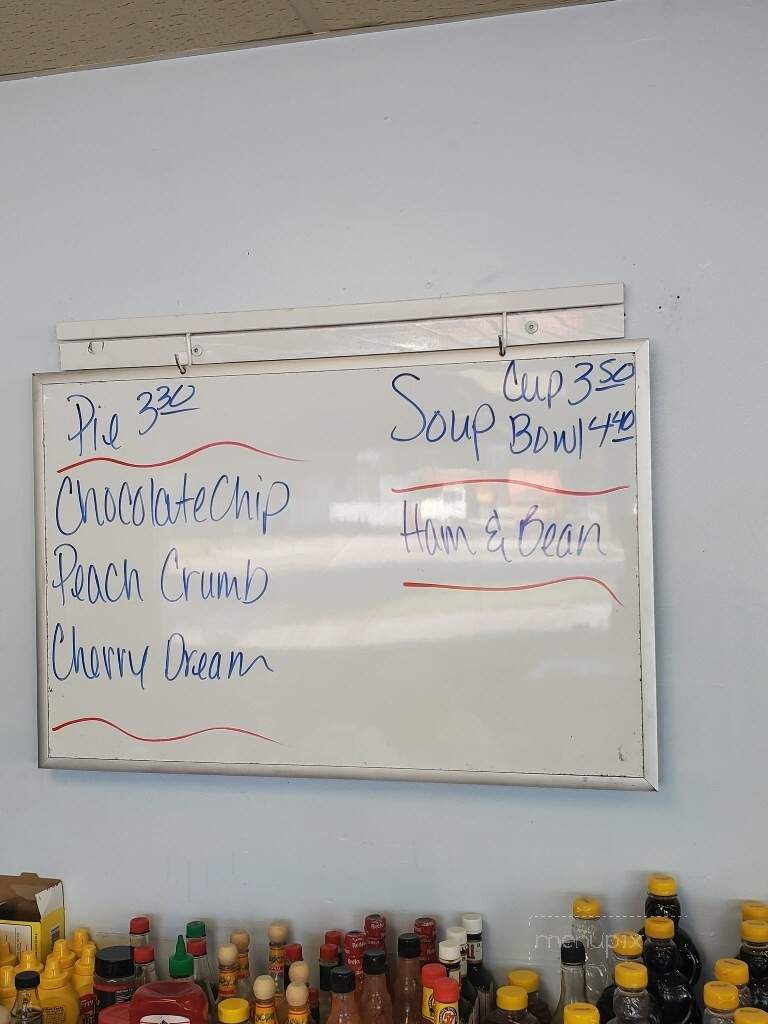 Pie 3 30
Chocolate Chip
Peach Crumb
Cherry Dream
Soup Cup 3 50
Bowl 4 40
Ham & Bean
menupix